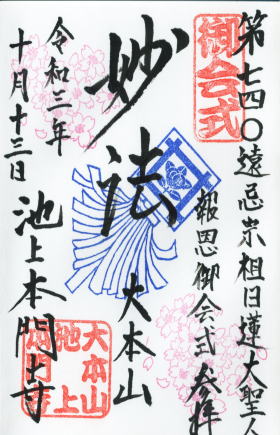 第七四〇遠忌宗祖日蓮大聖人
報恩御会式参拝
御会式
妙法
大本山
池上本門寺
令和三年
十月十三日
大本山
池上